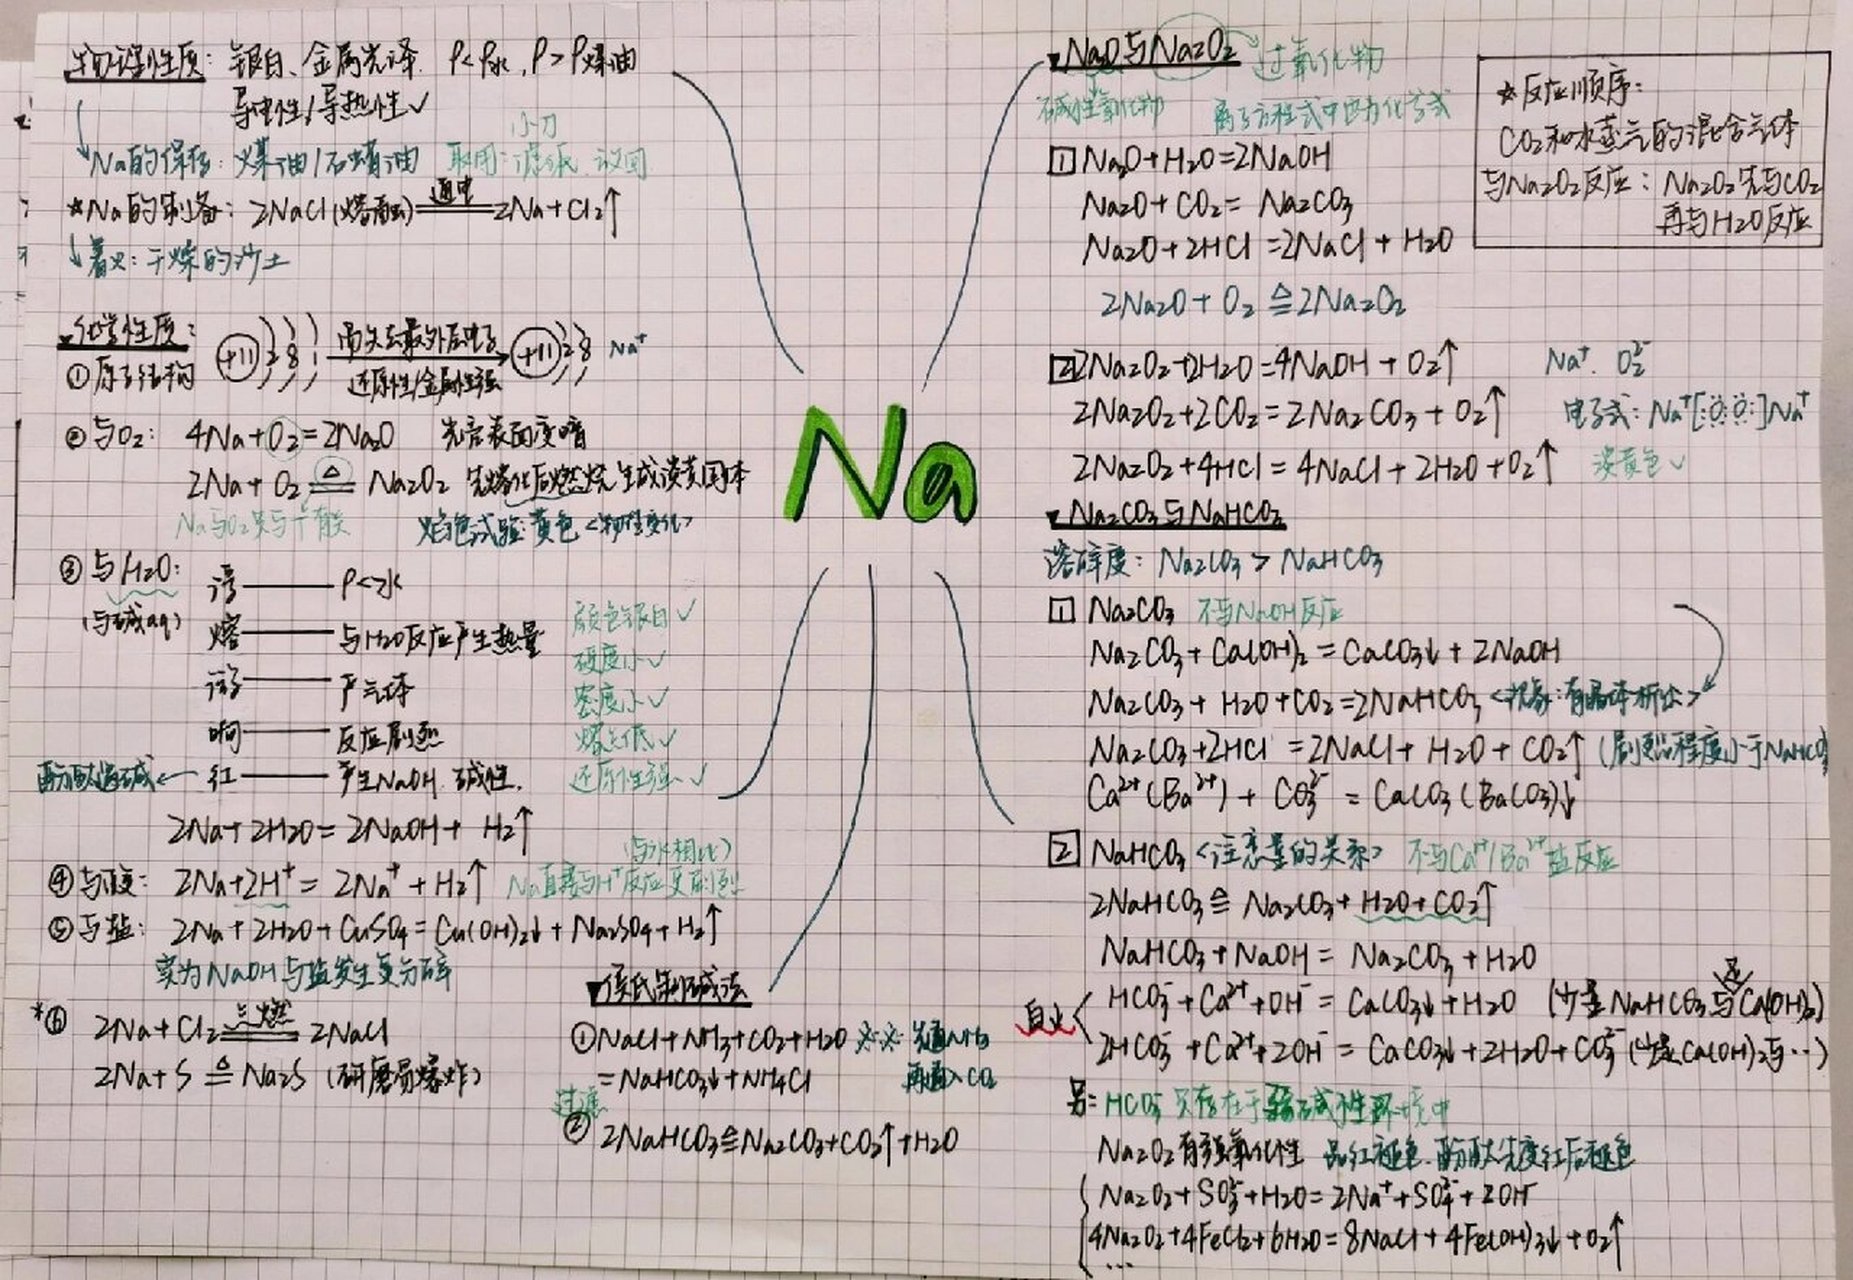 物理性质：银白、金属光泽. ρ<ρ水, ρ>ρ煤油
导电性/导热性✓
小刀
Na的保存：煤油/石蜡油 取用：滤纸 放回
*Na的制备：2NaCl(熔融) 通电══ 2Na+Cl₂↑
着火：干燥的沙土
化学性质：
①原子结构 (+11) 2 8 1 易失去最外层电子 (+11) 2 8 Na⁺
还原性/金属性强
②与O₂： 4Na+O₂=2Na₂O 先后表面变暗
2Na+O₂ ≜ Na₂O₂ 先熔化后燃烧 生成淡黄固体
Na与O₂ 焰色试验：黄色<物理变化>
③与H₂O：
(与碱aq)
浮——ρ<水
熔——与H₂O反应产生热量
游——产气体
响——反应剧烈
酚酞遇碱← 红——产生NaOH. 碱性.
颜色银白✓
硬度小✓
密度小✓
熔点低✓
还原性强✓
2Na+2H₂O=2NaOH+H₂↑
(与水相比)
④与酸： 2Na+2H⁺=2Na⁺+H₂↑ Na直接与H⁺反应更剧烈
⑤与盐： 2Na+2H₂O+CuSO₄=Cu(OH)₂↓+Na₂SO₄+H₂↑
实为NaOH与盐发生复分解
*⑥ 2Na+Cl₂ 点燃══ 2NaCl
2Na+S ≜ Na₂S (研磨易爆炸)
Na
侯氏制碱法
①NaCl+NH₃+CO₂+H₂O ※※ 先通NH₃
=NaHCO₃↓+NH₄Cl 再通入CO₂
过滤
② 2NaHCO₃≜Na₂CO₃+CO₂↑+H₂O
Na₂O与Na₂O₂ 过氧化物
碱性氧化物 离子方程式中均为化学式
1 Na₂O+H₂O=2NaOH
Na₂O+CO₂=Na₂CO₃
Na₂O+2HCl=2NaCl+H₂O
2Na₂O+O₂≜2Na₂O₂
*反应顺序：
CO₂和水蒸气的混合气体
与Na₂O₂反应：Na₂O₂先与CO₂
再与H₂O反应
2 2Na₂O₂+2H₂O=4NaOH+O₂↑ Na⁺. O₂²⁻
2Na₂O₂+2CO₂=2Na₂CO₃+O₂↑ 电子式：Na⁺[:Ö:Ö:]Na⁺
2Na₂O₂+4HCl=4NaCl+2H₂O+O₂↑ 淡黄色✓
Na₂CO₃与NaHCO₃
溶解度：Na₂CO₃>NaHCO₃
1 Na₂CO₃ 不与NaOH反应
Na₂CO₃+Ca(OH)₂=CaCO₃↓+2NaOH
Na₂CO₃+H₂O+CO₂=2NaHCO₃<现象：有晶体析出>
Na₂CO₃+2HCl=2NaCl+H₂O+CO₂↑ (剧烈程度小于NaHCO₃)
Ca²⁺(Ba²⁺)+CO₃²⁻=CaCO₃(BaCO₃)↓
2 NaHCO₃<注意量的关系> 不与Ca²⁺/Ba²⁺盐反应
2NaHCO₃≜Na₂CO₃+H₂O+CO₂↑
NaHCO₃+NaOH=Na₂CO₃+H₂O
HCO₃⁻+Ca²⁺+OH⁻=CaCO₃↓+H₂O (少量NaHCO₃与足Ca(OH)₂)
2HCO₃⁻+Ca²⁺+2OH⁻=CaCO₃↓+2H₂O+CO₃²⁻ (少量Ca(OH)₂与…)
另：HCO₃⁻只存在于弱碱性环境中
Na₂O₂有强氧化性 品红褪色. 酚酞先变红后褪色
Na₂O₂+SO₃²⁻+H₂O=2Na⁺+SO₄²⁻+2OH⁻
4Na₂O₂+4FeCl₂+6H₂O=8NaCl+4Fe(OH)₃↓+O₂↑
…